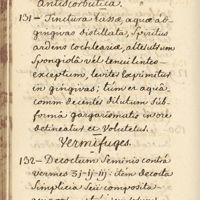 Antiscorbutica.
131 - Tinctura Lassæ, aquæ ab
gingivas distillata, spiritus
ardens Cochleariæ, altelultum
Spongiola vel lenui linteo
exceptum, leviter exprimitur
in gingivas; tum er aquâ
comm decentes dilutum sub
formâ gargarismatis in ore
detineatur et Volutetur.
Vermifuges.
132 - Decoctum Seminis contrà
vermes 3j-ij-iij: item decocta
Simplicia seu composita